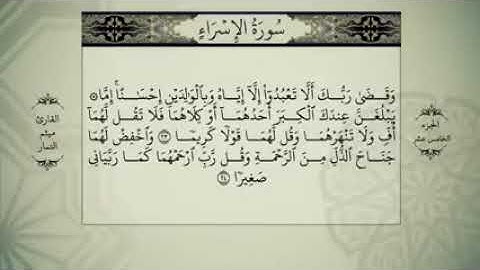 سُورَةُ الإِسْرَاءِ
وَقَضَىٰ رَبُّكَ أَلَّا تَعْبُدُوٓا۟ إِلَّآ إِيَّاهُ وَبِٱلْوَٰلِدَيْنِ إِحْسَـٰنًا ۚ إِمَّا
يَبْلُغَنَّ عِندَكَ ٱلْكِبَرَ أَحَدُهُمَآ أَوْ كِلَاهُمَا فَلَا تَقُل لَّهُمَآ
أُفٍّ وَلَا تَنْهَرْهُمَا وَقُل لَّهُمَا قَوْلًا كَرِيمًا ٢٣ وَٱخْفِضْ لَهُمَا
جَنَاحَ ٱلذُّلِّ مِنَ ٱلرَّحْمَةِ وَقُل رَّبِّ ٱرْحَمْهُمَا كَمَا رَبَّيَانِى
صَغِيرًا ٢٤
الجزء
الخامس عشر
القارئ
ميثم
التمار